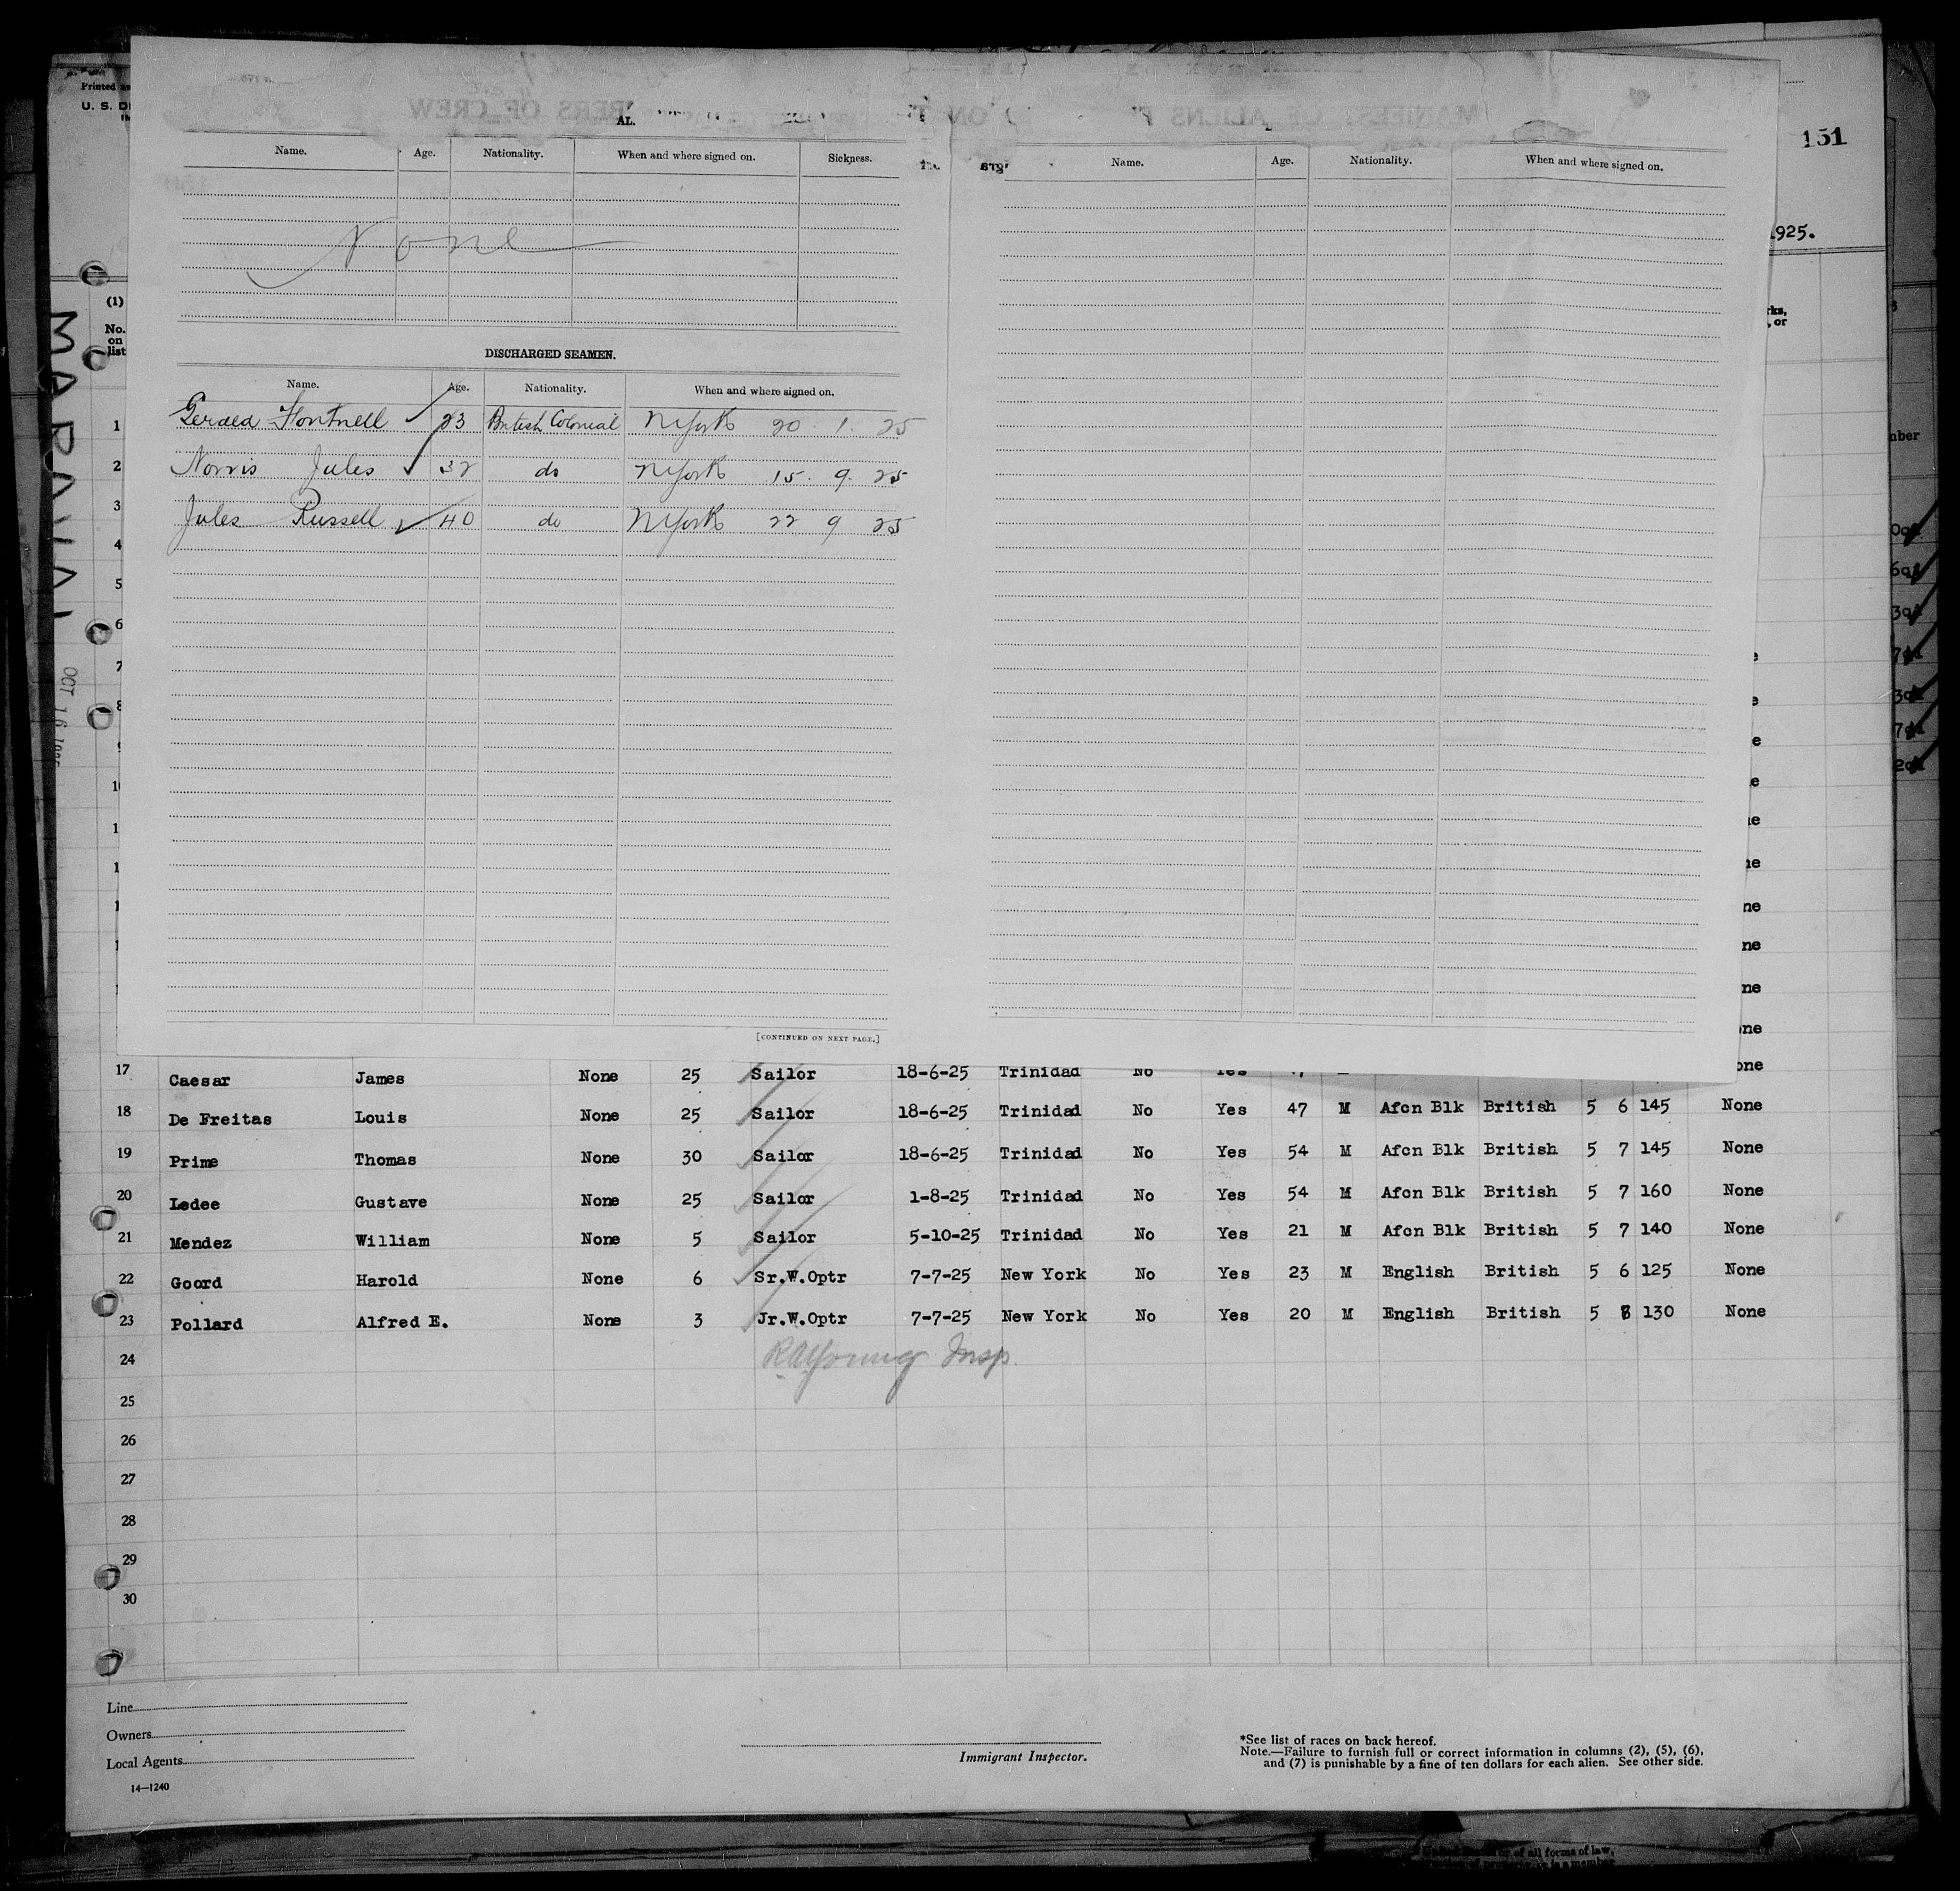 Printed
U. S.
151
1925.
MARAVAL OCT 16 1925
(1)
No. on list
AL.
Name. Age. Nationality. When and where signed on. Sickness.
None
Name. Age. Nationality. When and where signed on.
DISCHARGED SEAMEN.
Name. Age. Nationality. When and where signed on.
Gerald Fontnell 23 British Colonial N York 20 . 1 . 25
Norris Jules 32 do N York 15 . 9 . 25
Jules Russell 40 do N York 22 9 25
[CONTINUED ON NEXT PAGE.]
1
2
3
4
5
6
7
8
17 Caesar James None 25 Sailor 18-6-25 Trinidad No Yes
18 De Freitas Louis None 25 Sailor 18-6-25 Trinidad No Yes 47 M Afcn Blk British 5 6 145 None
19 Prime Thomas None 30 Sailor 18-6-25 Trinidad No Yes 54 M Afcn Blk British 5 7 145 None
20 Ledee Gustave None 25 Sailor 1-8-25 Trinidad No Yes 54 M Afcn Blk British 5 7 160 None
21 Mendez William None 5 Sailor 5-10-25 Trinidad No Yes 21 M Afcn Blk British 5 7 140 None
22 Goord Harold None 6 Sr.W.Optr 7-7-25 New York No Yes 23 M English British 5 6 125 None
23 Pollard Alfred E. None 3 Jr.W.Optr 7-7-25 New York No Yes 20 M English British 5 8 130 None
24 RAYoung Insp.
25
26
27
28
29
30
Line
Owners
Local Agents
14—1240
Immigrant Inspector.
*See list of races on back hereof.
Note.—Failure to furnish full or correct information in columns (2), (5), (6),
and (7) is punishable by a fine of ten dollars for each alien. See other side.
of all forms of law,